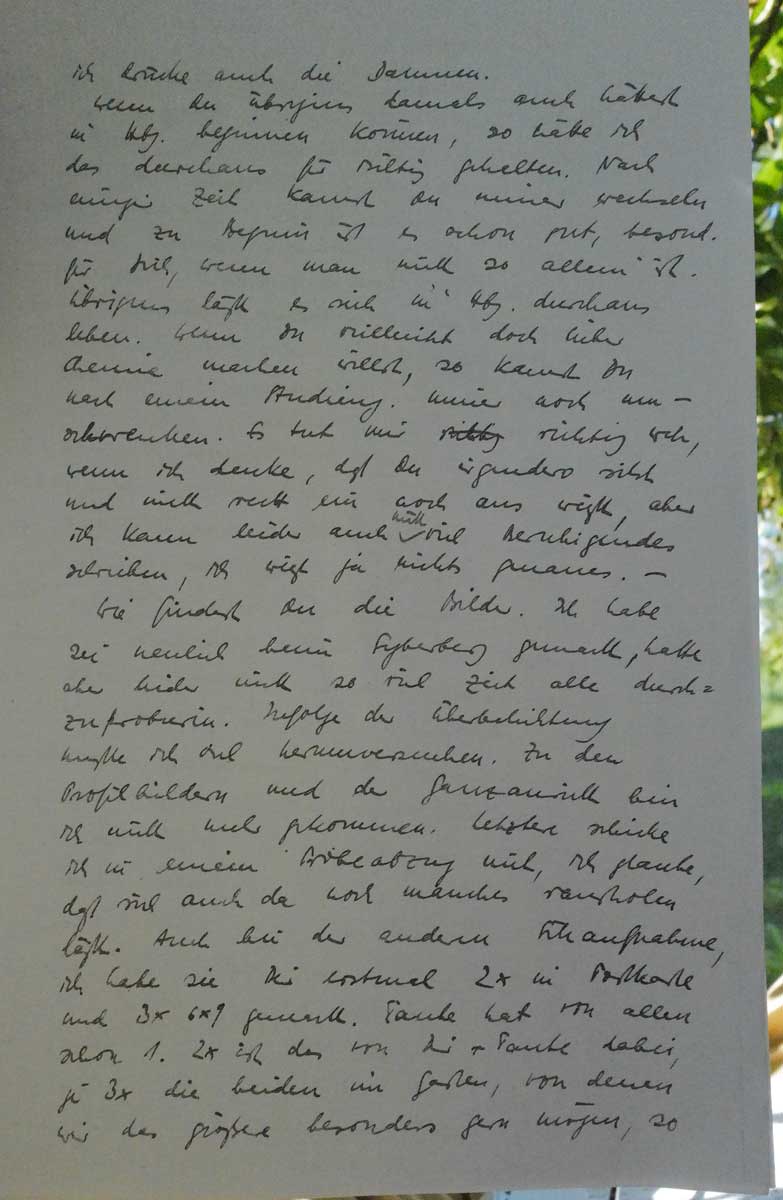 ich drücke auch die Daumen.
Wenn Du übrigens damals auch hättest
in Hbg. beginnen können, so hätte ich
das durchaus für richtig gehalten. Nach
einiger Zeit kannst Du immer wechseln
und zu Beginn ist es schon gut, besond.
für Dich, wenn man nicht so allein ist.
Übrigens läßt es sich in Hbg. durchaus
leben. Wenn Du vielleicht doch lieber
Chemie machen willst, so kannst Du
nach einem Studienj. immer noch um-
schwenken. Es tut mir richtig weh,
wenn ich denke, daß Du irgendwo sitzt
und nicht recht ein noch aus weißt, aber
ich kann leider auch nicht viel Beruhigendes
schreiben, ich weiß ja nichts genaues. –
Wie findest Du die Bilder. Ich habe
sie neulich beim Syberberg gemacht, hatte
aber leider nicht so viel Zeit alle durch=
zuprobieren. Infolge der Überbelichtung
mußte ich viel herumversuchen. Zu den
Profilbildern und der Ganzansicht bin
ich nicht mehr gekommen. Letztere schicke
ich in einem Probeabzug mit, ich glaube,
daß sich auch da noch manches rausholen
läßt. Auch bei der anderen
ich habe sie Dir erstmal 2x in Postkarte
und 3x 6x9 gemacht. Tante hat von allen
schon 1. 2x ist das von Dir + Tante dabei,
je 3x die beiden im Garten, von denen
wir das größere besonders gern mögen, so